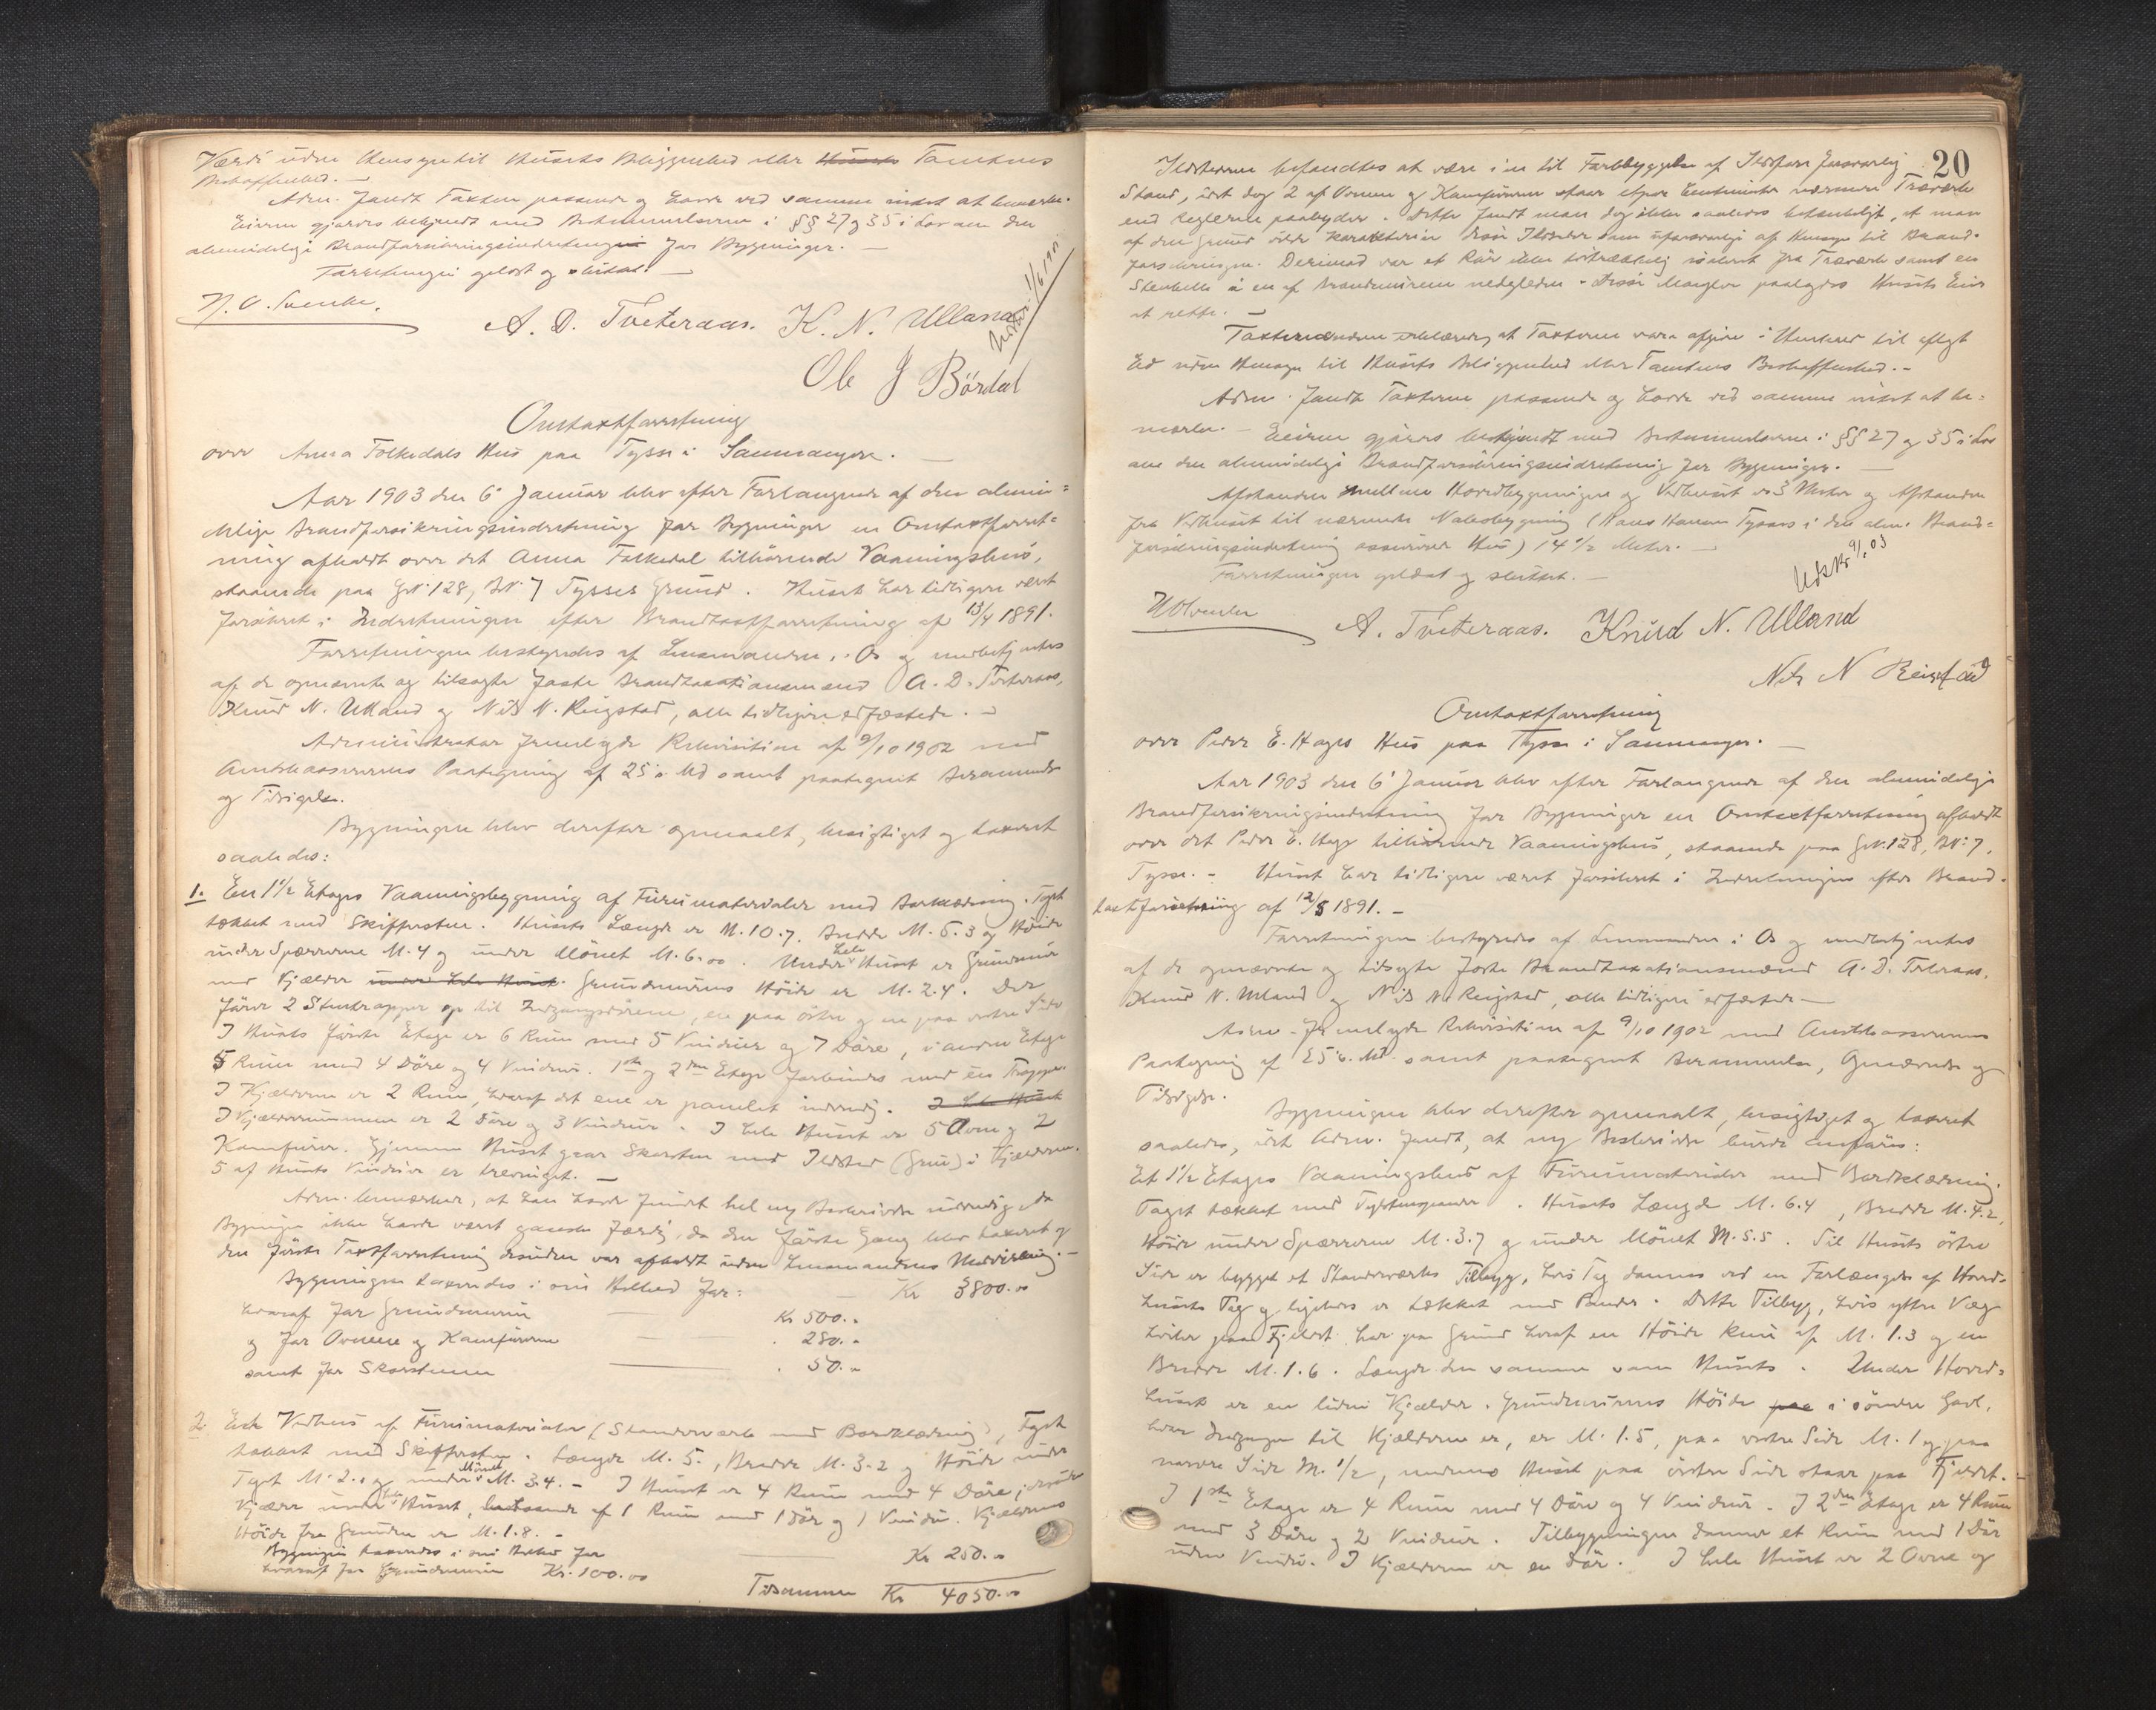 Værdi uden Hensyn til Husets Beliggenhed eller Husets Tomtens
Beskaffenhed. —
Adm. fandt Taxten passende og havde ved samme intet at bemærke.
Eieren gjøres bekjendt med Bestemmelserne i §§ 27 og 35 i Lov om den
almindelige Brandforsikringsindretning for Bygninger. —
Forretningen oplæst og sluttet. —
A. D. Tveteraas. K. N. Ulland
Ole J Bördal
Omtaxtforretning
over Anna Folkedals Hus paa Tysse i Samnanger. —
Aar 1903 den 6 Januar blev efter Forlangende af den almin=
delige Brandforsikringsindretning for Bygninger en Omtaxtforret=
ning afholdt over det Anna Folkedal tilhørende Vaaningshus,
staaende paa GN. 128, BN. 7 Tysses Grund. Huset har tidligere været
forsikret i Indretningen efter Brandtaxtforretning af 13/4 1891.
Forretningen bestyredes af Lensmanden i Os og medbetjentes
af de opnævnte og tilsagte faste Brandtaxationsmænd A. D. Tveteraas,
Knud N. Ulland og Nils N. Reigstad, alle tidligere edfæstede. —
Administrator fremlagde Rekvisition af 9/10 1902 med
Amtskassererens Paategning af 25 s. Md samt paategnet Berammelse
og Tilsigelse.
Bygningen blev derefter opmaalt, besigtiget og taxeret
saaledes:
1. En 1 1/2 Etages Vaaningsbygning af Furumaterialer med Bordklædning. Taget
tækket med Skiffersten. Husets Længde er M. 10.7, Bredde M. 6.3 og Høide
under Spærrerne M. 4 og under Mønet M. 6.00. Under hele Huset er Grundmur
med Kjælder under hele Huset. Grundmurens Høide er M. 2.4. Der
fører 2 Stentrapper op til Indgangsdørene, en paa østre og en paa vestre Side
I Husets første Etage er 6 Rum med 5 Vinduer og 7 Døre, i anden Etage
5 Rum med 4 Døre og 4 Vinduer. 1ste og 2den Etage forbindes med en Trappe.
I Kjælderen er 2 Rum, hvoraf det ene er panelet indvendig. I hele Huset
I Kjælderrummene er 2 Døre og 3 Vinduer. I hele Huset er 5 Ovne og 2
Komfurer. Gjennem Huset gaar Skorsten med Ildsted (Grue) i Kjælderen.
5 af Husets Vinduer er
Adm. bemærker, at han havde fundet hel ny Beskrivelse nødvendig da
Bygningen ikke havde været ganske færdig, da den første Gang blev taxeret og
den første Taxtforretning desuden var afholdt uden Lensmandens Medvirkning. —
Bygningen taxeredes i sin Helhed for: — Kr 3800.00
hvoraf for Grundmuren — Kr 500. "
og for Ovnene og Komfurerne — " 280. "
samt for Skorstenen — " 50. "
2. Et Vedhus af Furumaterialer (Standerværk med Bordklædning), Taget
tækket med Skiffersten. Længde M. 5., Bredde M. 3.2 og Høide under
Taget M. 2.. og under Mønet M. 3.4. — I Huset er 4 Rum med 4 Døre,
Kjælder under Huset, bestaaende af 1 Rum med 1 Dør og 1 Vindu. Kjælderens
Høide fra Grunden er M. 1.8. —
Bygningen taxeredes i sin Helhed for — Kr 250.00
hvoraf for Grundmuren Kr. 100.00
Tilsammen Kr 4050.00
20
Ildstederne befandtes at være i en til Forebyggelse af Ildsfare forsvarlig
Stand, idet dog 2 af Ovnene og Komfurerne staar et par Centimeter nærmere Træværk
end Reglerne paabyder. Dette fandt man dog ikke saaledes betænkeligt, at man
af den Grund vilde karakterisere disse Ildsteder som uforsvarlige af Hensyn til Brand=
forsikringen. Derimod var et Rør ikke tilstrækkelig isoleret fra Træværk samt en
Stenhelle i en af Brandmurene nedgleden. Disse Mangler paalagdes Husets Eier
at rette. —
Taxtmændene erklærede, at Taxterne vare afgivne i Henhold til aflagt
Ed uden Hensyn til Husets Beliggenhed eller Tomtens Beskaffenhed. —
Adm. fandt Taxterne passende og havde ved samme intet at be=
mærke. — Eieren gjøres bekjendt med Bestemmelserne i §§ 27 og 35 i Lov
om den almindelige Brandforsikringsindretning for Bygninger. —
Afstanden mellem Hovedbygningen og Vedhuset er 3 Meter og Afstanden
fra Vedhuset til nærmeste Nabobygning (Hans Hansen Tysses i den alm. Brand=
forsikringsindretning assurerede Hus) 14 1/2 Meter. —
Forretningen oplæst og sluttet. —
Udskr 9/1 03
A. Tveteraas. Knud N. Ulland
Nils N Reigstad
Omtaxtforretning
over Peder E. Hages Hus paa Tysse i Samnanger. —
Aar 1903 den 6 Januar blev efter Forlangende af den almindelige
Brandforsikringsindretning for Bygninger en Omtaxtforretning afholdt
over det Peder E. Hage tilhørende Vaaningshus, staaende paa GN. 128, BN. 7,
Tysse. — Huset har tidligere været forsikret i Indretningen efter Brand=
taxtforretning af 12/8 1891. —
Forretningen bestyredes af Lensmanden i Os og medbetjentes
af de opnævnte og tilsagte faste Brandtaxationsmænd A. D. Tveteraas,
Knud N. Ulland og Nils N. Reigstad, alle tidligere edfæstede —
Adm. fremlagde Rekvisition af 9/10 1902 med Amtskassererens
Paategning af 25 s. Md. samt paategnet Berammelse, Opnævnelse og
Tilsigelse.
Bygningen blev derefter opmaalt, besigtiget og taxeret
saaledes, idet Adm. fandt, at ny Beskrivelse burde anføres:
Et 1 1/2 Etages Vaaningshus af Furumaterialer med Bordklædning.
Taget tækket med Tagstenspander. Husets Længde M. 6.4, Bredde M. 4.2,
Høide under Spærrerne M. 3.7 og under Mønet M. 5.5. Til Husets østre
Side er bygget et Standerværks Tilbyg, hvis Tag dannes ved en Forlængelse af Hoved=
husets Tag og ligeledes er tækket med Pander. Dette Tilbyg, hvis ydre Væg
hviler paa Fjeldet har paa Grund heraf en Høide kun af M. 1.3 og en
Bredde M. 1.6. Længde den samme som Husets. Under Hoved=
huset er en liden Kjælder. Grundmurens Høide paa i søndre Gavl,
hvor Indgangen til Kjælderen er, er M. 1.5, paa vestre Side M. 1 og paa
nordre Side M. 1/2, medens Huset paa østre Side staar paa Fjeldet. —
I 1ste Etage er 4 Rum med 4 Døre og 4 Vinduer. I 2den Etage er 4 Rum
med 3 Døre og 2 Vinduer. Tilbygningen danner et Rum med 1 Dør
uden Vindu. I Kjælderen er en Dør. I hele Huset er 2 Ovne og